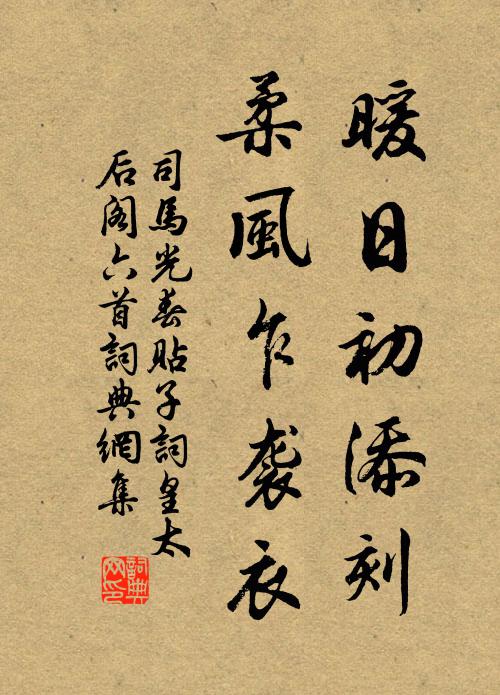 暖日初添刻
柔風乍襲衣
司馬光春貼子詞皇太
后閣六首詞典網集
詞典
网印